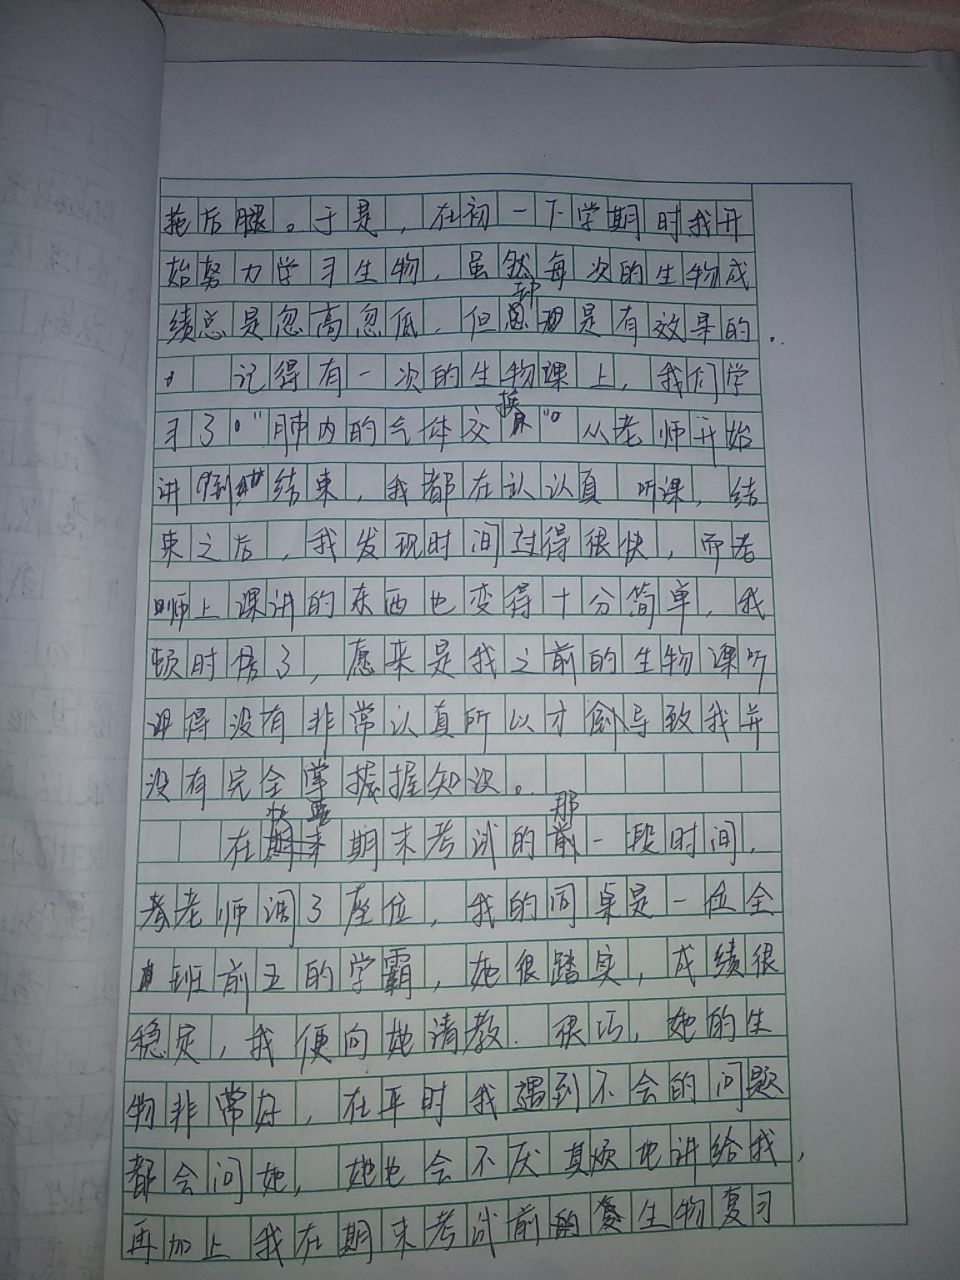 拖后腿。于是，在初一下学期时我开
始努力学习生物，虽然每次的生物成
绩总是忽高忽低，但都是有效果的。
记得有一次的生物课上，我们学
习了“肺内的气体交换”。从老师开始
讲到结束，我都在认认真听课，结
束之后，我发现时间过得很快，而老
师上课讲的东西也变得十分简单，我
顿时悟了，愿来是我之前的生物课听
课得没有非常认真所以才导致我并
没有完全掌握握知识。
在快要期末考试的那一段时间，
老师调了座位，我的同桌是一位全
班前五的学霸，她很踏实，成绩很
稳定，我便向她请教．很巧，她的生
物非常好，在平时我遇到不会的问题
都会问她，她也会不厌其烦地讲给我，
再加上我在期末考试前的生物复习